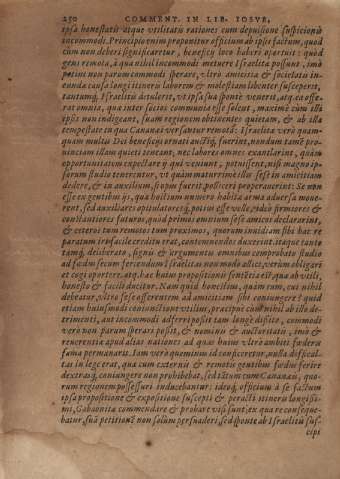 250 COMMENT. IN LIB. IOSVE,
ipsa honestatis atque vtilitatis rationes cum depulsione suspicionis
incommodi. Principio enim proponitur officium ab ipsis factum, quod
cum non deberi significaretur, beneficij loco haberi oportuit: quod
gens remota, à qua nihil incommodi metuere Israelitæ possunt, imò
petint non parum commodi sperare, vltro amicitiæ & societatis in-
eundæ causa longi itineris laborem & molestiam libenter susceperit,
tantumq́; Israelitis detulerit, vt ipsa suæ spontè venerit, atq; ea offe-
rat omnia, quæ inter socios communia esse solent, maximè cùm illa
ipsis non indigeant, suam regionem obtinentes quietam, & ab illa
tempestate in qua Cananæi versantur remotã: Israelitæ verò quam-
quam multis Dei beneficijs ornati auctiq́; fuerint, nondum tamẽ pro-
uinciam illam quieti teneant, nec labores omnes exantlarint, quàm
opportunitatem expectare ij qui veniunt, potuissent, nisi magno ip-
sorum studio tenerentur, vt quàm maturrimè illis sese in amicitiam
dedere, & in auxilium, si opus fuerit, polliceri properauerint: Se non
esse ex gentibus ijs, quæ hostium numero habitæ arma aduersa moue-
rent, sed auxiliares opitulatoresq́; potius esse velle, eodẽ firmiores &
constantiores futuros, quòd primos omnium sese amicos declararint,
& ceteros tum remotos tum proximos, quorum inuidiam sibi hac re
paratum iri facilè crediti erat, contemnendos duxerint. itaque tanto
tamq́; deliberato, signis & argumentis omnibus comprobato studio
ad fœdus secum feriendum Israelitas non modò allici, verùm obligari
et cogi oportere. atq; hæc huius propositionis sentẽtia est, quæ ab vtili,
honesto & facili ducitur. Nam quid honestius, quàm eum, cui nihil
debeatur, vltrò sese offerentem ad amicitiam sibi coniungere? quid
etiam huiusmodi coniunctione vtilius, præcipuè cum nihil ab illo de-
trimenti, aut incommodi adferri possit tam longè dissito, commodi
verò non parum sperari possit, & nominis & auctoritatis, imò &
reuerentiæ apud alias nationes ad quas huius vltrò ambiti fœderis
fama permanarit. Iam verò quominus id conficeretur, nulla difficul-
tas in lege erat, quæ cum externis & remotis gentibus fœdus ferire
dextrasq́; coniungere non prohibebat, sed tãtùm cum Cananæis, quo-
rum regionem possessuri inducebantur: ideoq́; officium à se factum
ipsa propositione & expositione suscepti & peracti itineris longissi-
mi, Gabaonitæ commendare & probare visi sunt, ex qua re conseque-
batur, suã petitionẽ non solùm persuaderi, sed sponte ab Israelitis sus-
cipi